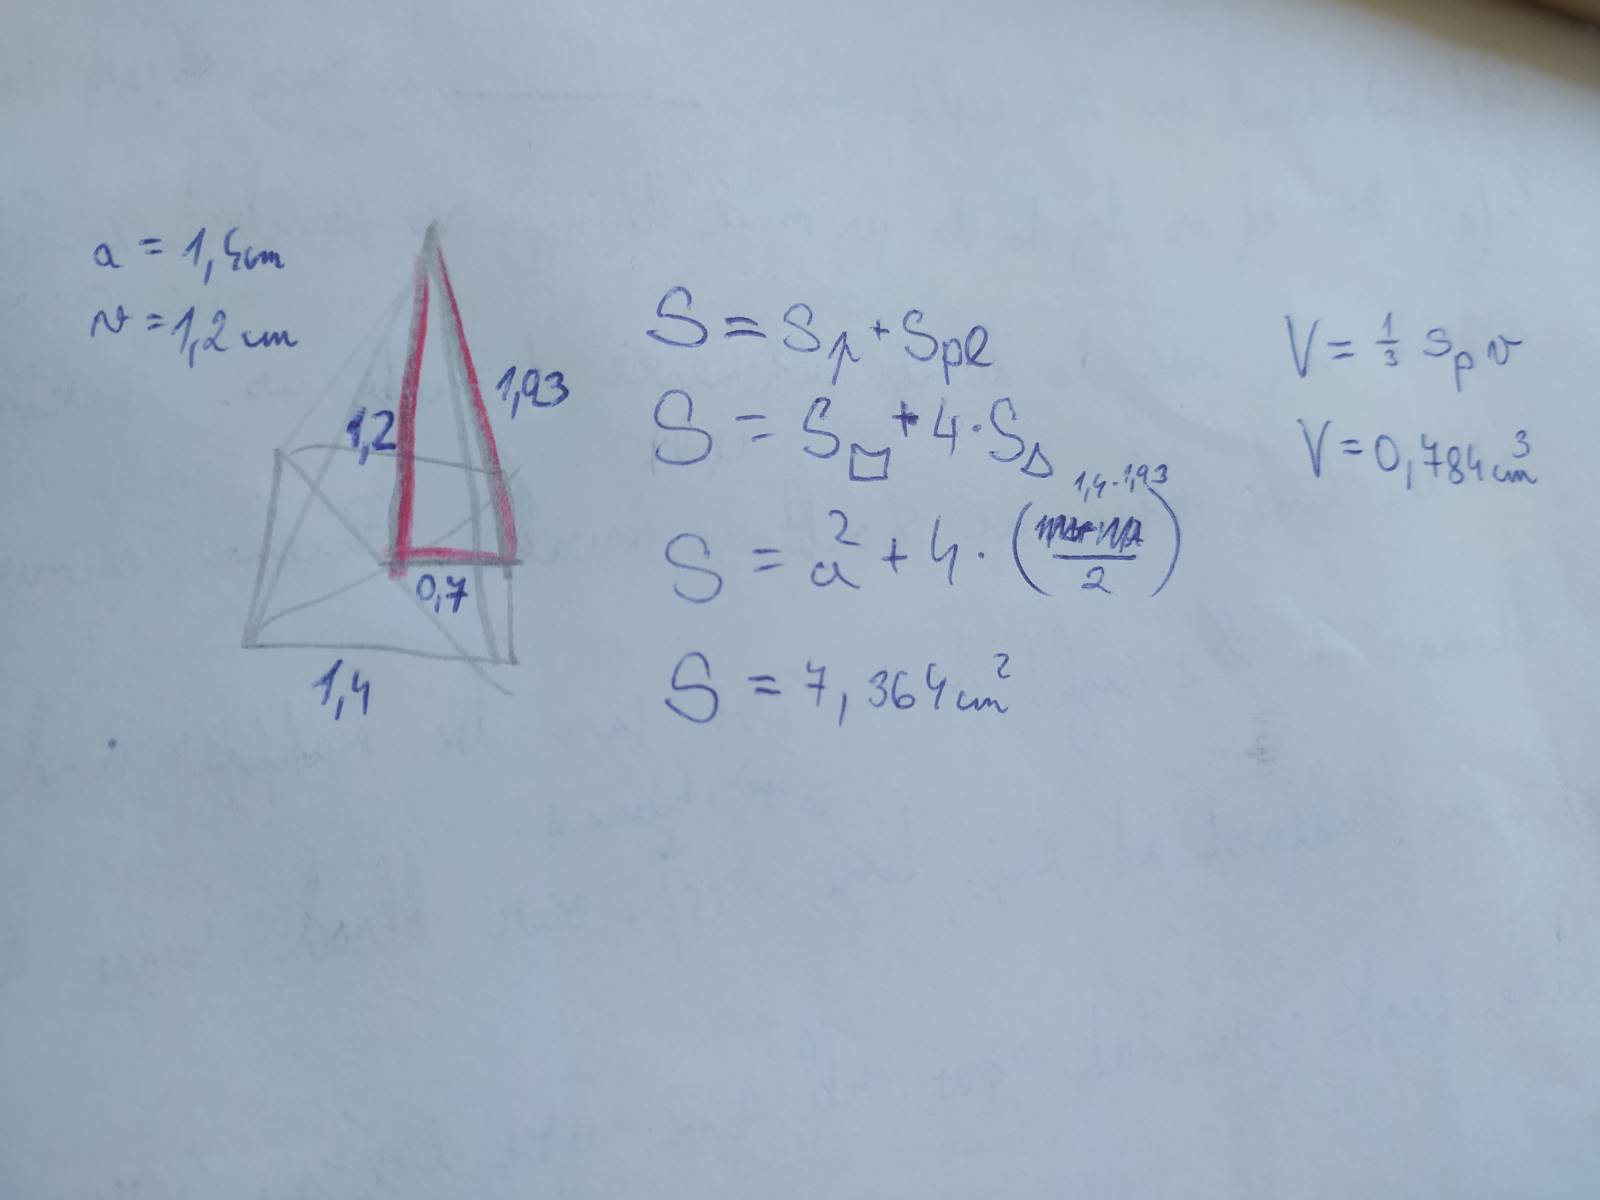 a = 1,4cm
v = 1,2 cm
1,2
1,93
0,7
1,4
S = Sp + Spl
S = S□ + 4 · S△
1,4 · 1,93
S = a² + 4 · ( / 2)
S = 7,364 cm²
V = 1/3 Sp v
V = 0,784 cm³